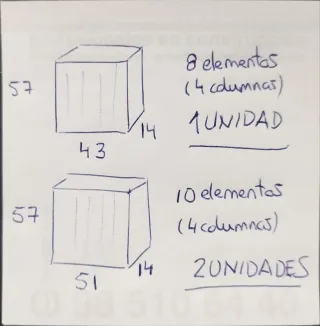 57
43
14
8 elementos
(4 columnas)
1 UNIDAD
57
51
14
10 elementos
(4 columnas)
2 UNIDADES